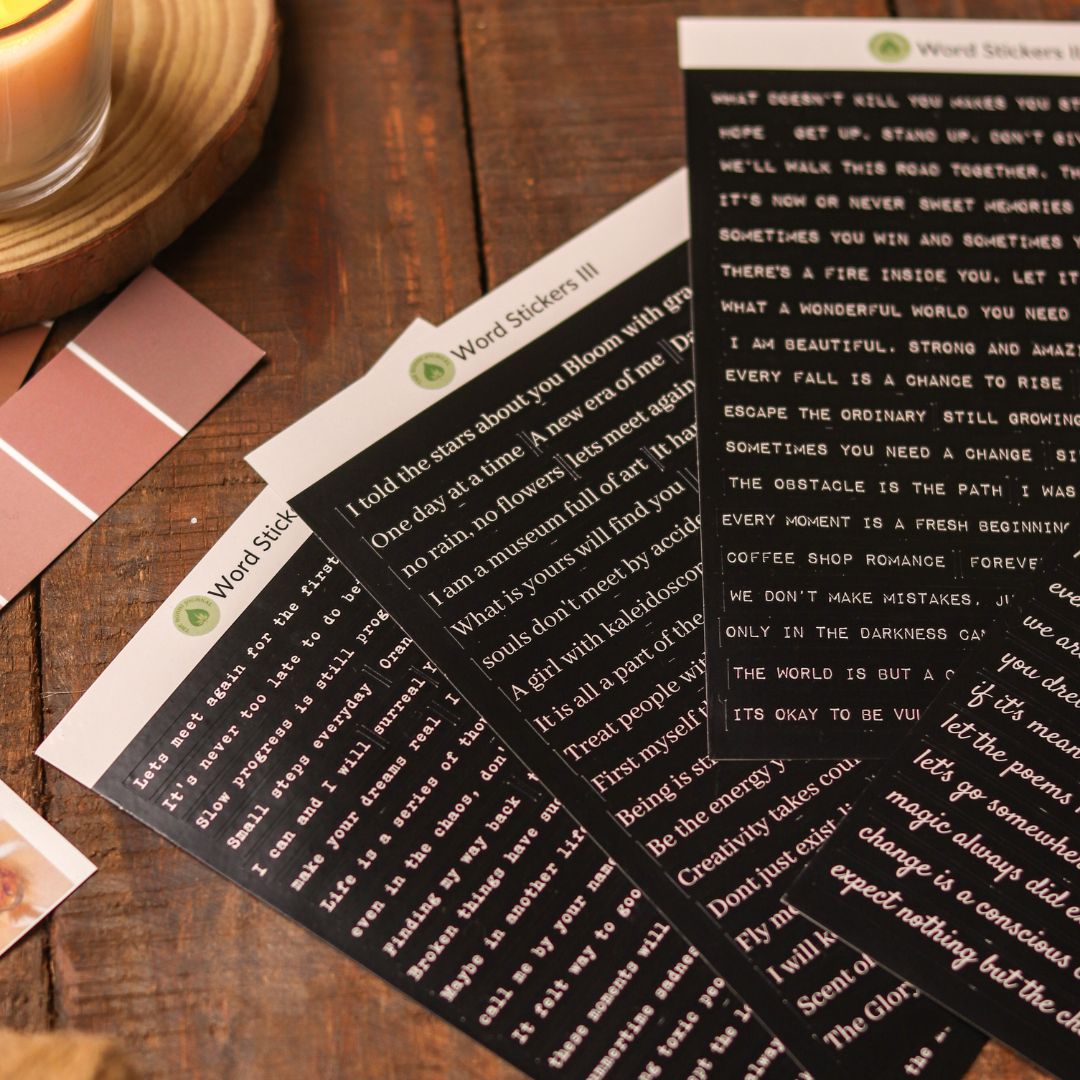 Word Stickers
WHAT DOESN'T KILL YOU MAKES YOU
HOPE GET UP. STAND UP. DON'T
WE'LL WALK THIS ROAD TOGETHER.
IT'S NOW OR NEVER SWEET MEMORIES
SOMETIMES YOU WIN AND SOMETIMES
THERE'S A FIRE INSIDE YOU. LET IT
WHAT A WONDERFUL WORLD YOU NEED
I AM BEAUTIFUL. STRONG AND
EVERY FALL IS A CHANCE TO RISE
ESCAPE THE ORDINARY STILL GROWING
SOMETIMES YOU NEED A CHANGE
THE OBSTACLE IS THE PATH I WAS
EVERY MOMENT IS A FRESH BEGINNING
COFFEE SHOP ROMANCE
WE DON'T MAKE MISTAKES,
ONLY IN THE DARKNESS
THE WORLD IS BUT A
ITS OKAY TO BE
Word Stickers III
I told the stars about you Bloom with
One day at a time A new era of me
no rain, no flowers lets meet again
I am a museum full of art It
What is yours will find you
souls don't meet by
A girl with
It is all a part of the
Treat people
First myself
Being is
Be the energy
Creativity takes
Dont just exist
Fly me
I will
Scent of
The Glory
Word
Lets meet again for the first
It's never too late to do
Slow progress is still
Small steps everyday
I can and I will surreal
make your dreams real I
Life is a series of
even in the chaos, don'
Finding my way back
Broken things have
Maybe in another
call me by your name
It felt way to
these moments will
toxic
the
always
we
you
if it's
let the poems
lets go
magic always did
change is a conscious
expect nothing but the